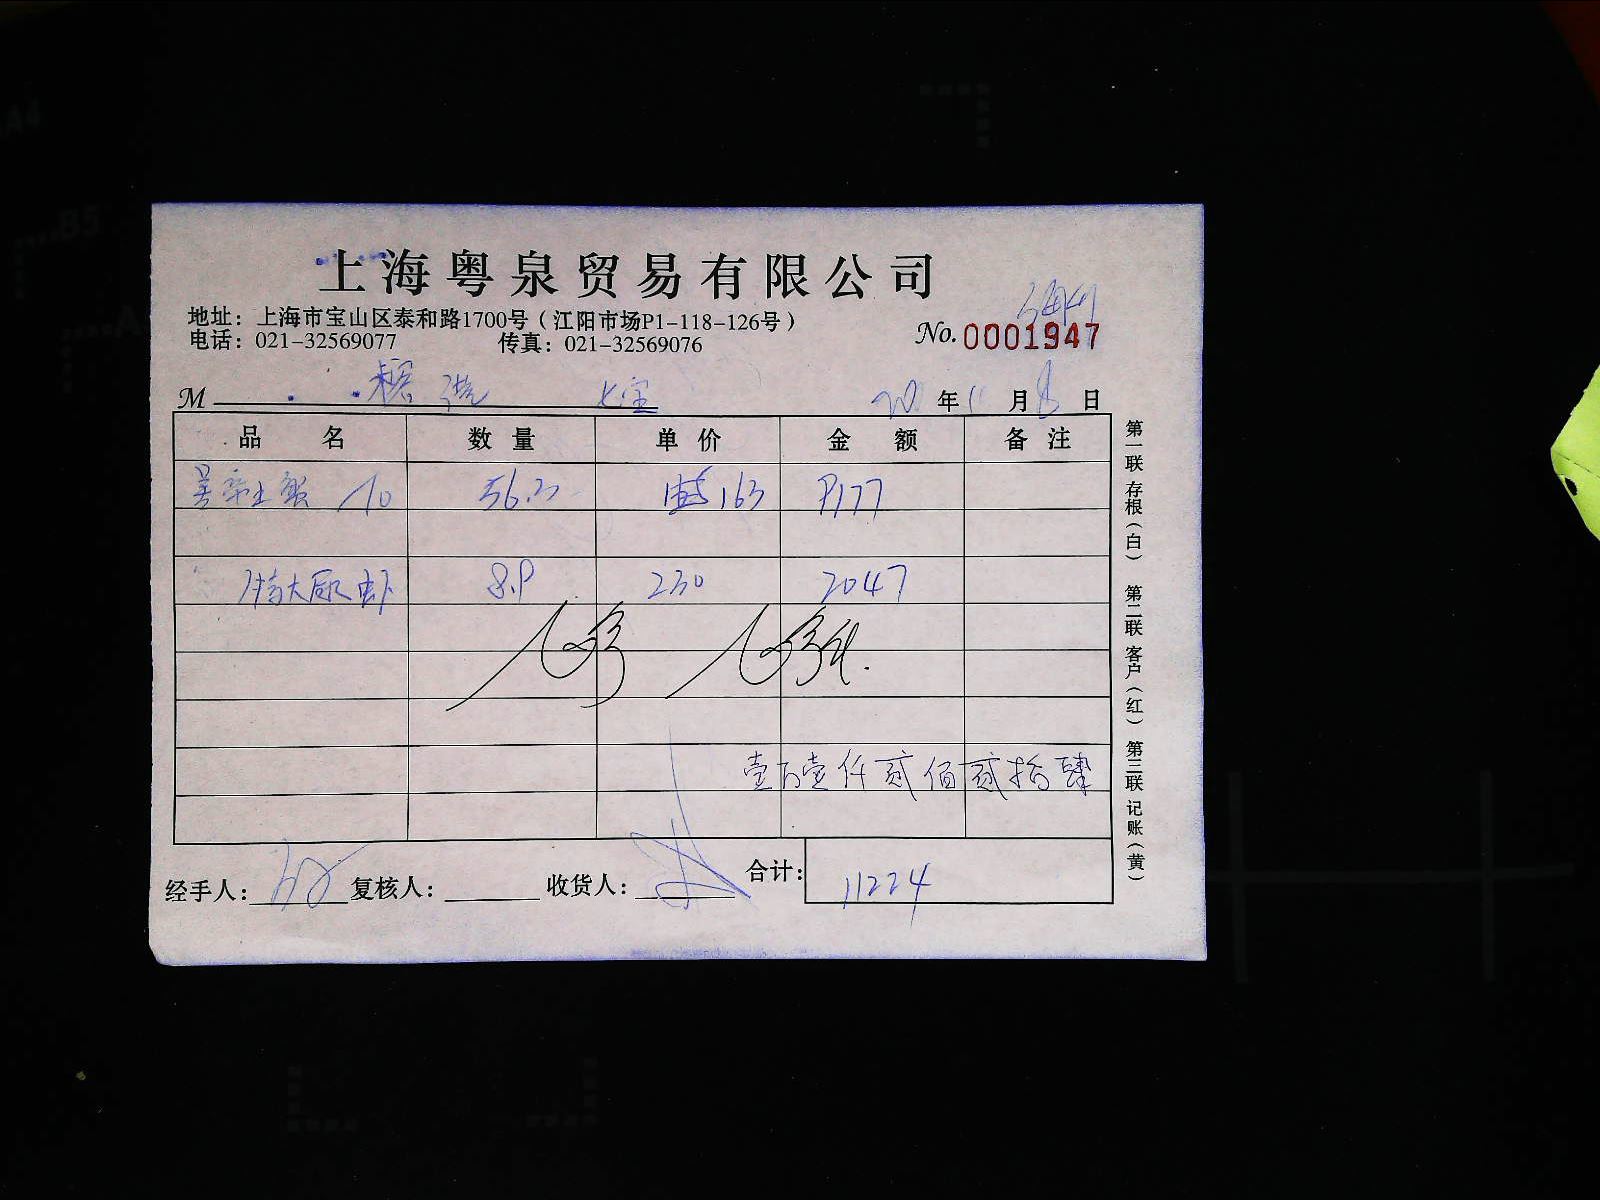 上海粤泉贸易有限公司
地址：上海市宝山区泰和路1700号（江阳市场P1-118-126号）
电话：021-32569077 传真：021-32569076
No.0001947
M 七宝 20 年 11 月 8 日
品名 数量 单价 金额 备注
163 9177
特大尿虾 8.9 230 2047
壹万壹仟贰佰贰拾肆
经手人： 复核人： 收货人： 合计： 11224
第一联 存根（白） 第二联 客户（红） 第三联 记账（黄）